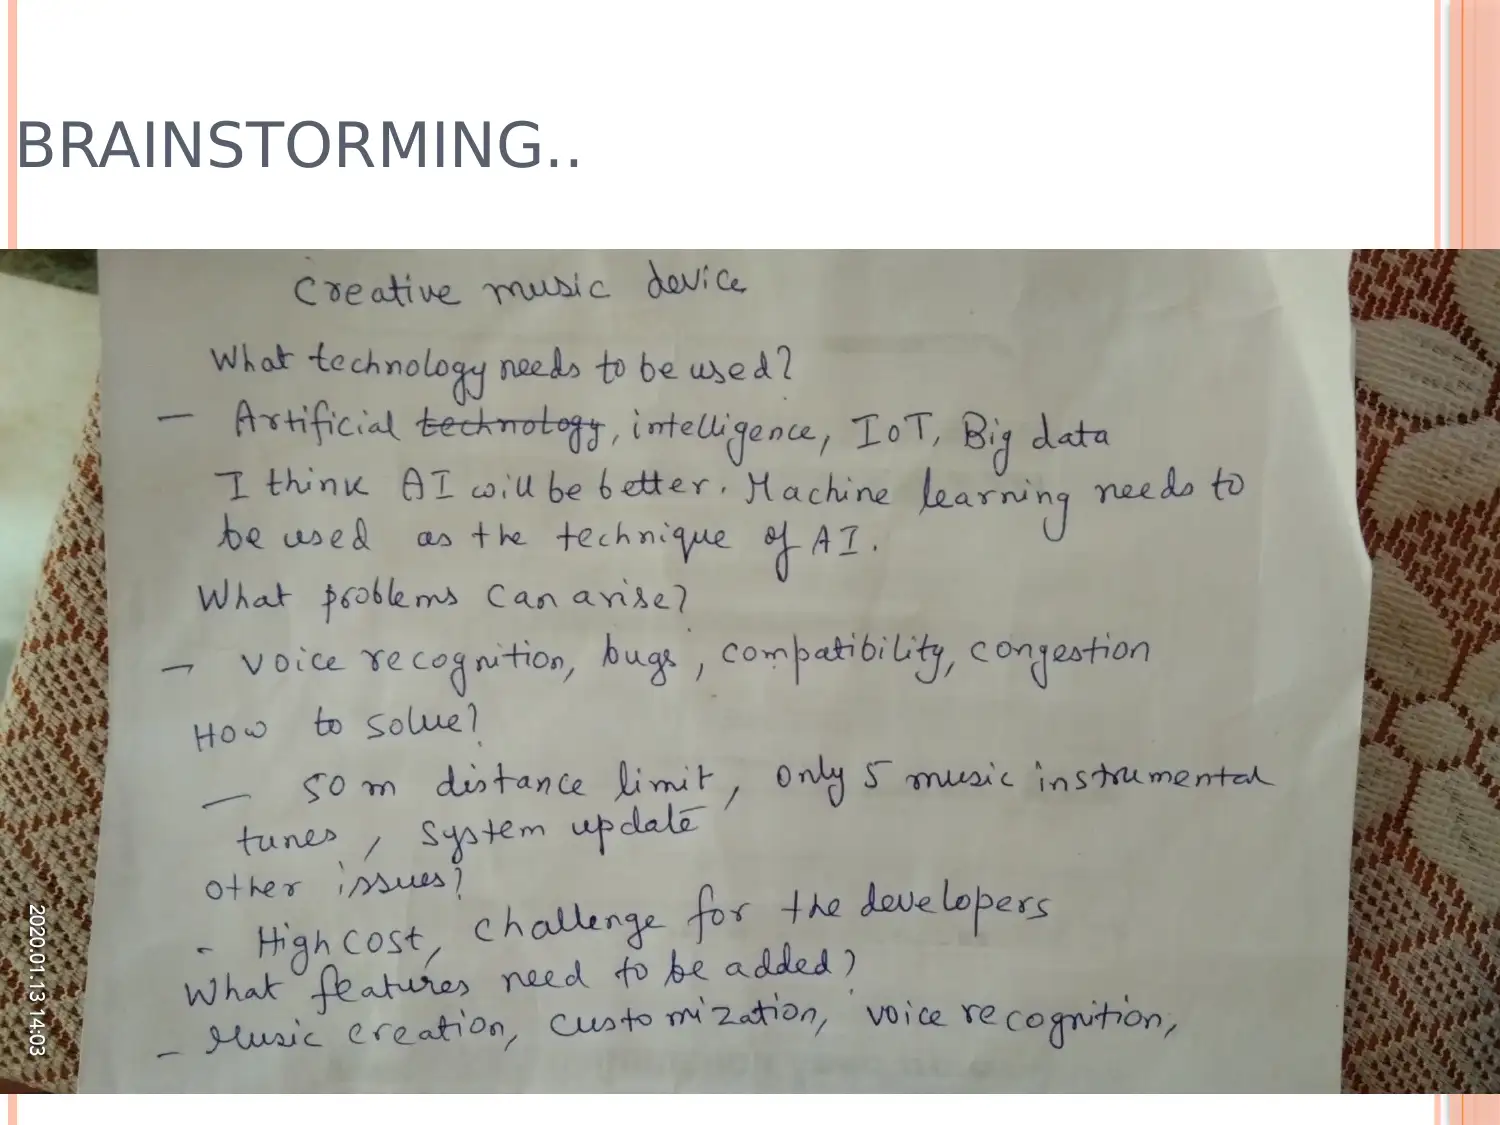 BRAINSTORMING..
Creative music device
What technology needs to be used?
— Artificial technology, intelligence, IoT, Big data
I think AI will be better. Machine learning needs to
be used as the technique of AI.
What problems can arise?
— voice recognition, bugs, compatibility, congestion
How to solve?
— 50 m distance limit, only 5 music instrumental
tunes, system update
other issues?
- High cost, challenge for the developers
What features need to be added?
— Music creation, customization, voice recognition,
2020.01.13 14:03